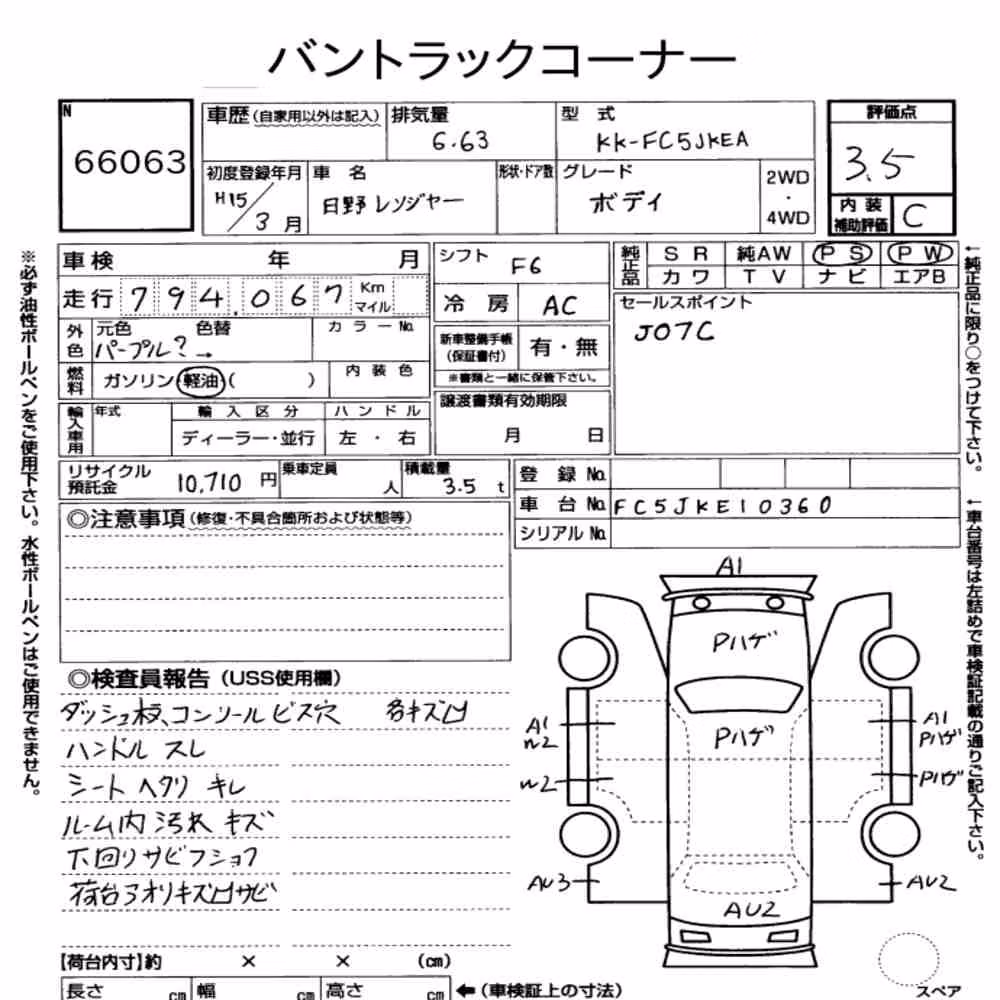 バントラックコーナー
N
66063
車歴(自家用以外は記入)
排気量
6.63
型 式
KK-FC5JKEA
評価点
3.5
初度登録年月
H15/3月
車 名
日野 レンジャー
形状・ドア数
グレード
ボディ
2WD
・
4WD
内 装
補助評価
C
※必ず油性ボールペンをご使用下さい。水性ボールペンはご使用できません。
車検 年 月
シフト
F6
純正品
SR 純AW PS PW
カワ TV ナビ エアB
走行 794.067 Km マイル
冷 房 AC
セールスポイント
J07C
外色
元色 色替
パープル?→
カラーNo.
新車整備手帳
(保証書付)
有・無
※書類と一緒に保管下さい。
燃料
ガソリン 軽油 ( )
内 装 色
譲渡書類有効期限
月 日
輸入車用
年式
輸 入 区 分
ハ ン ド ル
ディーラー・並行
左 ・ 右
リサイクル
預託金
10,710 円
乗車定員
人
積載量
3.5 t
登 録 No.
車 台 No. FC5JKE10360
シリアル No.
←純正品に限り○をつけて下さい。
←車台番号は左詰めで車検証記載の通りご記入下さい。
◎注意事項(修復・不具合箇所および状態等)
◎検査員報告(USS使用欄)
ダッシュ板、コンソール ビス穴 各キズ凹
ハンドル スレ
シート ヘタリ キレ
ルーム内 汚れ キズ
下回りサビフショク
荷台アオリキズ凹サビ
A1
Pハゲ
Pハゲ
A1
W2
W2
A1
Pハゲ
Pハゲ
AU3
AU2
AU2
【荷台内寸】約 × × (cm)
長さ cm 幅 cm 高さ cm
←(車検証上の寸法)
スペア